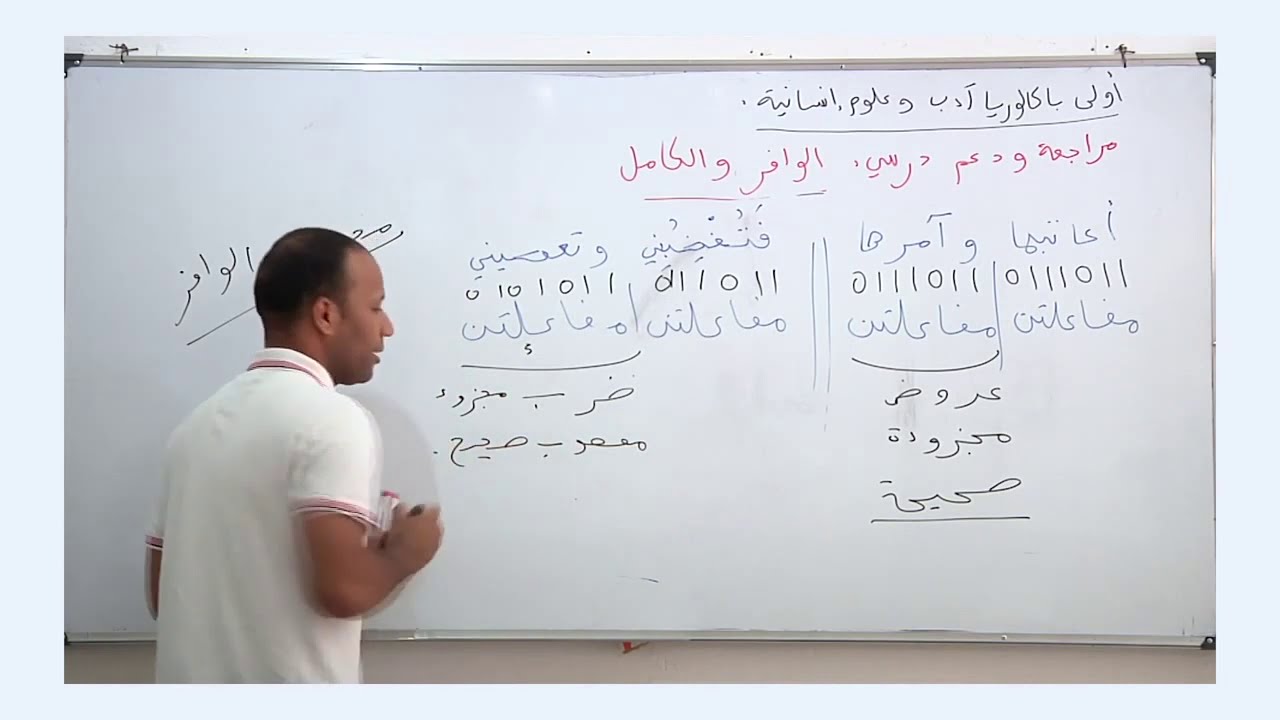 أولى باكالوريا آدب وعلوم إنسانية.
مراجعة ودعم درسي: الوافر والكامل
أعاتبها وآمرها || فَتُغْضِبُني وتعصيني
0111011 | 0111011 0111011 | 0101011
مفاعلتن | مفاعلتن مفاعلتن | مفاعلتن
عروض ضرب مجزوء
مجزوءة معصوب صحيح.
صحيحة
الوافر